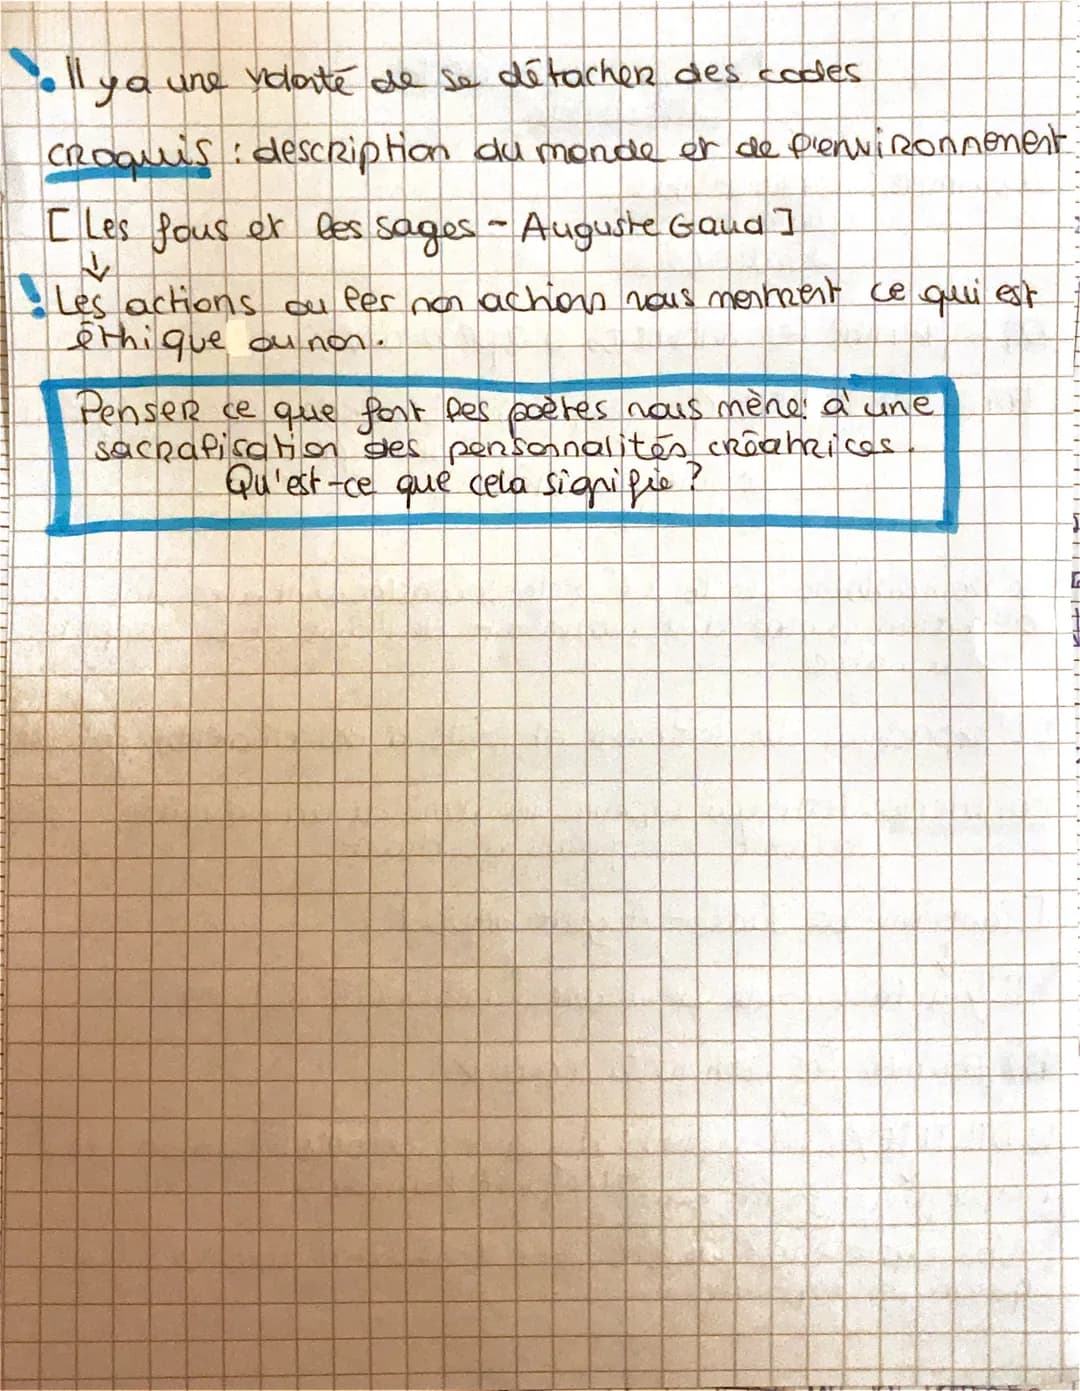 Il y a une volonté de se détacher des codes
croquis : description du monde et de l'environnement
[Les fous et les sages - Auguste Gaud]
↓
Les actions ou les non actions nous mènent ce qui est
éthique ou non.
Penser ce que font les poètes nous mène: à une
sacralisation des personnalités créatrices.
Qu'est-ce que cela signifie ?